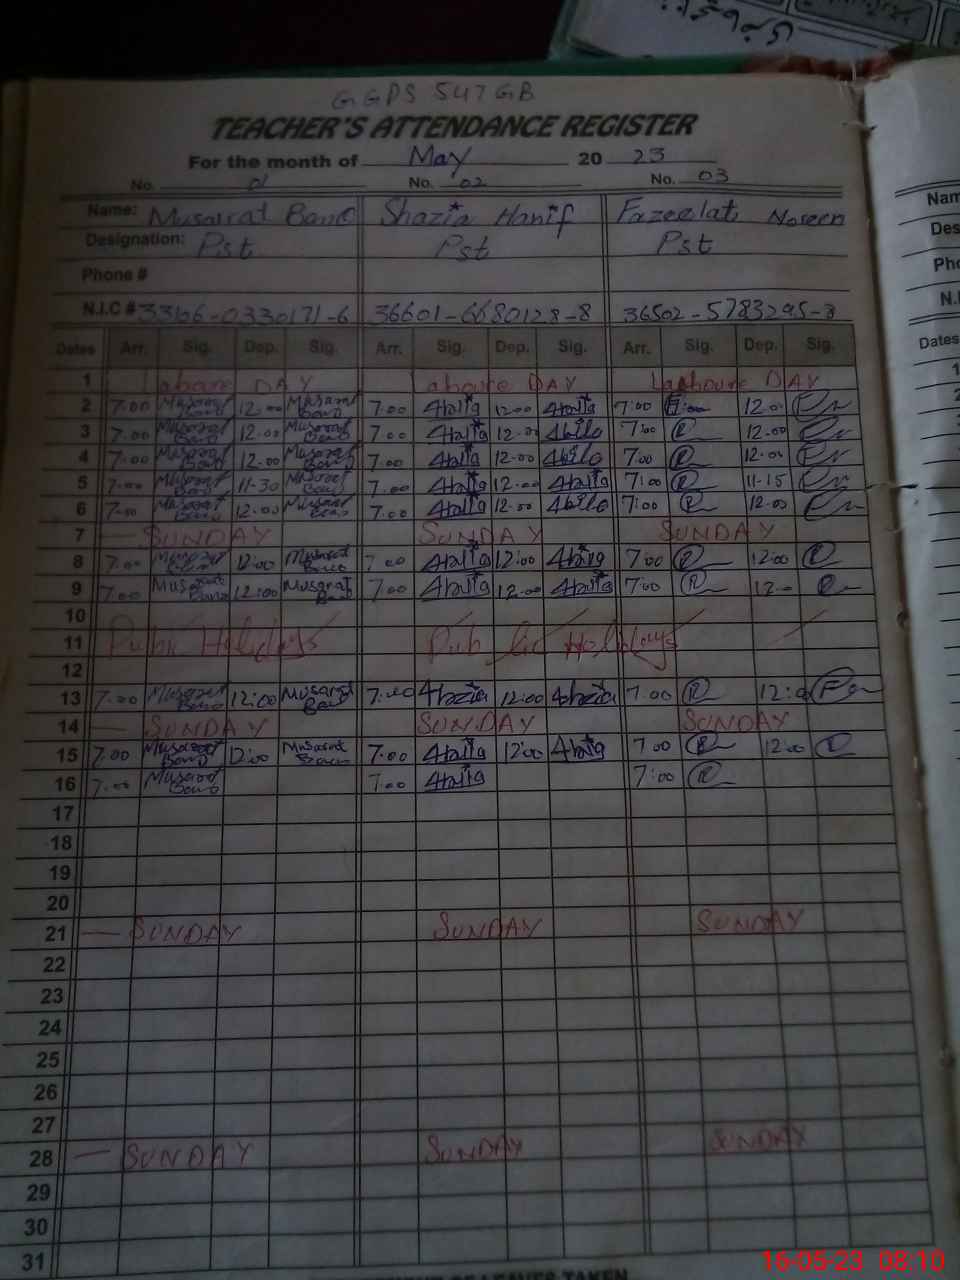 GGPS 547 GB
TEACHER'S ATTENDANCE REGISTER
For the month of May 20 23
No. 01 No. 02 No. 03
Name: Musarrat Bano Shazia Hanif Fazeelat Noreen
Designation: Pst Pst Pst
Phone #
N.I.C # 33166-0330171-6 36601-6680128-8 36502-5783295-8
Dates Arr. Sig. Dep. Sig. Arr. Sig. Dep. Sig. Arr. Sig. Dep. Sig.
1 Laboure DAY Laboure DAY Laboure DAY
2 7.00 Musarat Bano 12.00 Musarat Bano 7.00 12.00 7:00 12.00
3 7.00 Musarat Bano 12.00 Musarat Bano 7.00 12.00 7:00 12.00
4 7.00 Musarat Bano 12.00 Musarat Bano 7.00 12.00 7.00 12.00
5 7.00 Musarat Bano 11-30 Musarat Bano 7.00 12.00 7:00 11-15
6 7.00 Musarat Bano 12.00 Musarat Bano 7.00 12.00 7:00 12.00
7 — SUNDAY SUNDAY SUNDAY
8 7.00 Musarat Bano 12:00 Musarat Bano 7.00 12:00 7:00 12:00
9 7.00 Musarat Bano 12:00 Musarat Bano 7.00 12.00 7:00 12.00
10
11 Public Holidays Public Holidays
12
13 7.00 Musarat Bano 12:00 Musarat Bano 7.00 Shazia 12:00 Shazia 7.00 12:00
14 — SUNDAY SUNDAY SUNDAY
15 7.00 Musarat Bano 12:00 Musarat Bano 7.00 12:00 7:00 12:00
16 7.00 Musarat Bano 7.00 7:00
17
18
19
20
21 — SUNDAY SUNDAY SUNDAY
22
23
24
25
26
27
28 — SUNDAY SUNDAY SUNDAY
29
30
31
16-05-23 08:10
Dates